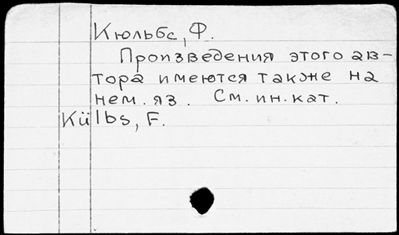 Кюльбс, Ф.
Произведения этого ав-
тора имеются также на
нем. яз. См. ин. кат.
Külbs, F.